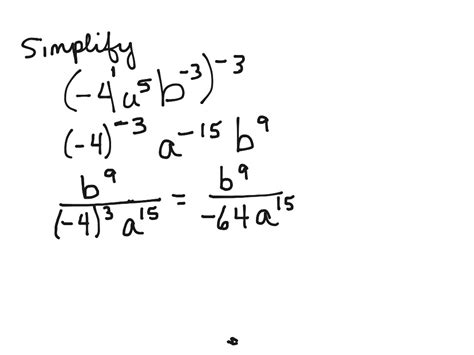 Simplify
(-4¹a⁵b⁻³)⁻³
(-4)⁻³ a⁻¹⁵ b⁹
b⁹/((-4)³ a¹⁵) = b⁹/(-64a¹⁵)